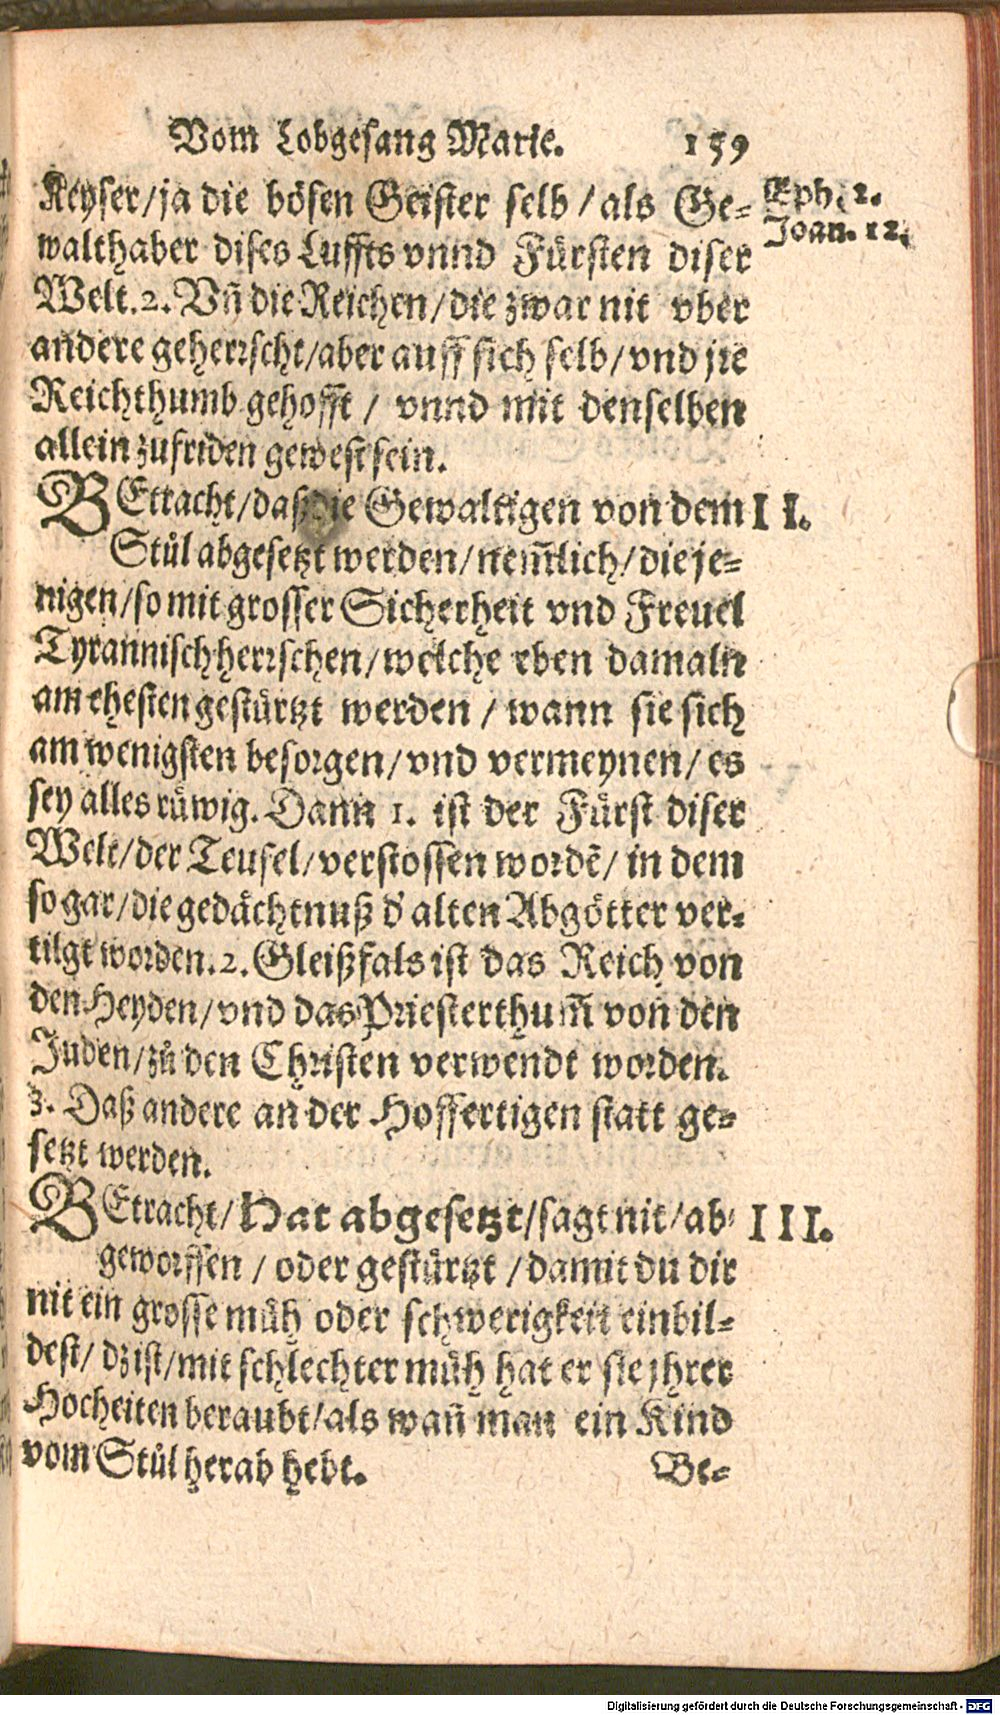 Vom Lobgesang Marie. 159
Keyser/ja die bösen Geister selb/als Ge-
walthaber dises Luffts vnnd Fürsten diser
Welt. 2. Vñ die Reichen/die zwar nit vber
andere geherrscht/aber auff sich selb/vnd jre
Reichthumb gehofft/ vnnd mit denselben
allein zufriden gewest sein.
Eph. 2.
Joan. 12.
BEtracht/daß die Gewaltigen von dem
Stůl abgesetzt werden/nem̃lich/die je-
nigen/so mit grosser Sicherheit vnd Freuel
Tyrannisch herrschen/welche eben damaln
am ehesten gestürtzt werden/wann sie sich
am wenigsten besorgen/vnd vermeynen/es
sey alles rüwig. Dann 1. ist der Fürst diser
Welt/der Teufel/verstossen wordẽ/in dem
so gar/die gedächtnuß d' alten Abgötter ver-
tilgt worden. 2. Gleißfals ist das Reich von
den Heyden/vnd das Priesterthum̃ von den
Juden/zů den Christen verwendt worden.
3. Daß andere an der Hoffertigen statt ge-
setzt werden.
II.
BEtracht/Hat abgesetzt/sagt nit/ab-
geworffen/oder gestürtzt/damit du dir
nit ein grosse müh oder schwerigkeit einbil-
dest/dz ist/mit schlechter müh hat er sie jhrer
Hocheiten beraubt/als wañ man ein Kind
vom Stůl herab hebt.
III.
Be-
Digitalisierung gefördert durch die Deutsche Forschungsgemeinschaft - DFG